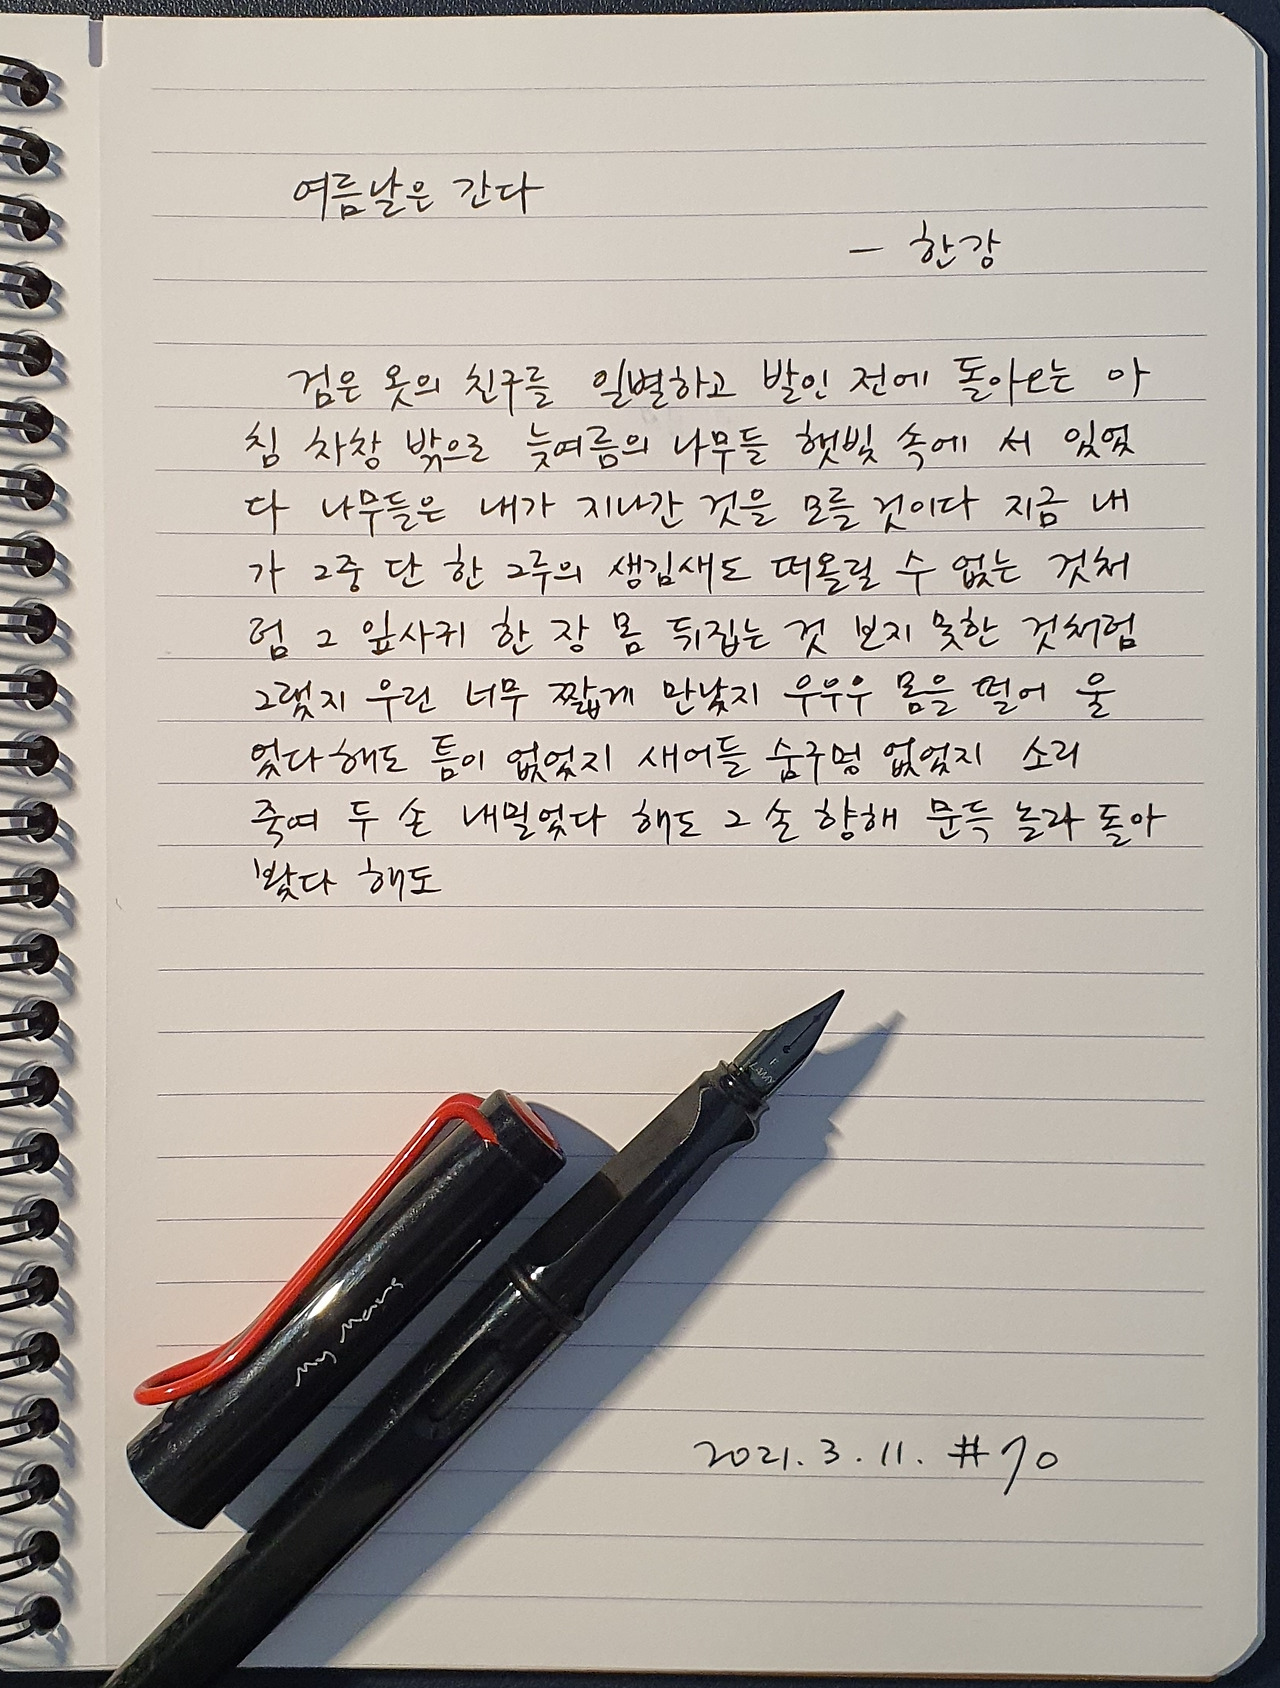 여름날은 간다
- 한강
검은 옷의 친구를 일별하고 발인 전에 돌아오는 아
침 차창 밖으로 늦여름의 나무들 햇빛 속에 서 있었
다 나무들은 내가 지나간 것을 모를 것이다 지금 내
가 그중 단 한 그루의 생김새도 떠올릴 수 없는 것처
럼 그 잎사귀 한 장 몸 뒤집는 것 보지 못한 것처럼
그랬지 우린 너무 짧게 만났지 우우우 몸을 떨어 울
었다 해도 틈이 없었지 새어들 숨구멍 없었지 소리
죽여 두 손 내밀었다 해도 그 손 향해 문득 놀라 돌아
봤다 해도
F
LAMY
My Mavs
2021. 3. 11. #70